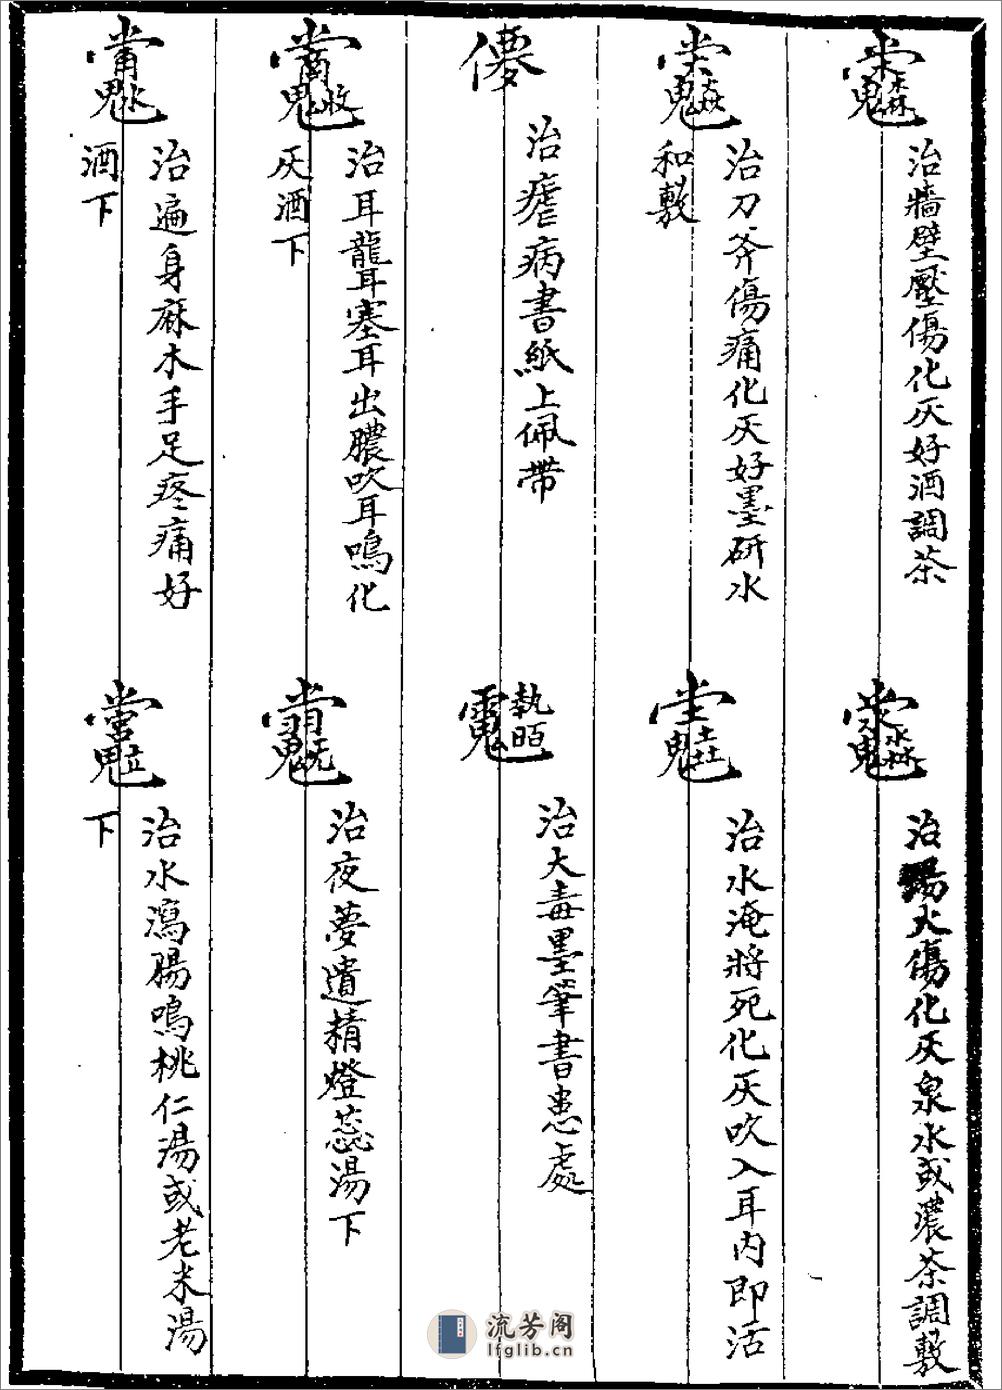 治牆壁壓傷化灰好酒調茶
治湯火傷化灰泉水或濃茶調敷
治刀斧傷痛化灰好墨研水
和敷
治水淹將死化灰吹入耳內即活
治瘧病書紙上佩帶
治大毒墨筆書患處
治耳聾耳塞耳出膿吹耳鳴化
灰酒下
治夜夢遺精燈蕊湯下
治遍身麻木手足疼痛好
酒下
治水瀉腸鳴桃仁湯或老米湯
下
流芳阁
lfglib.cn